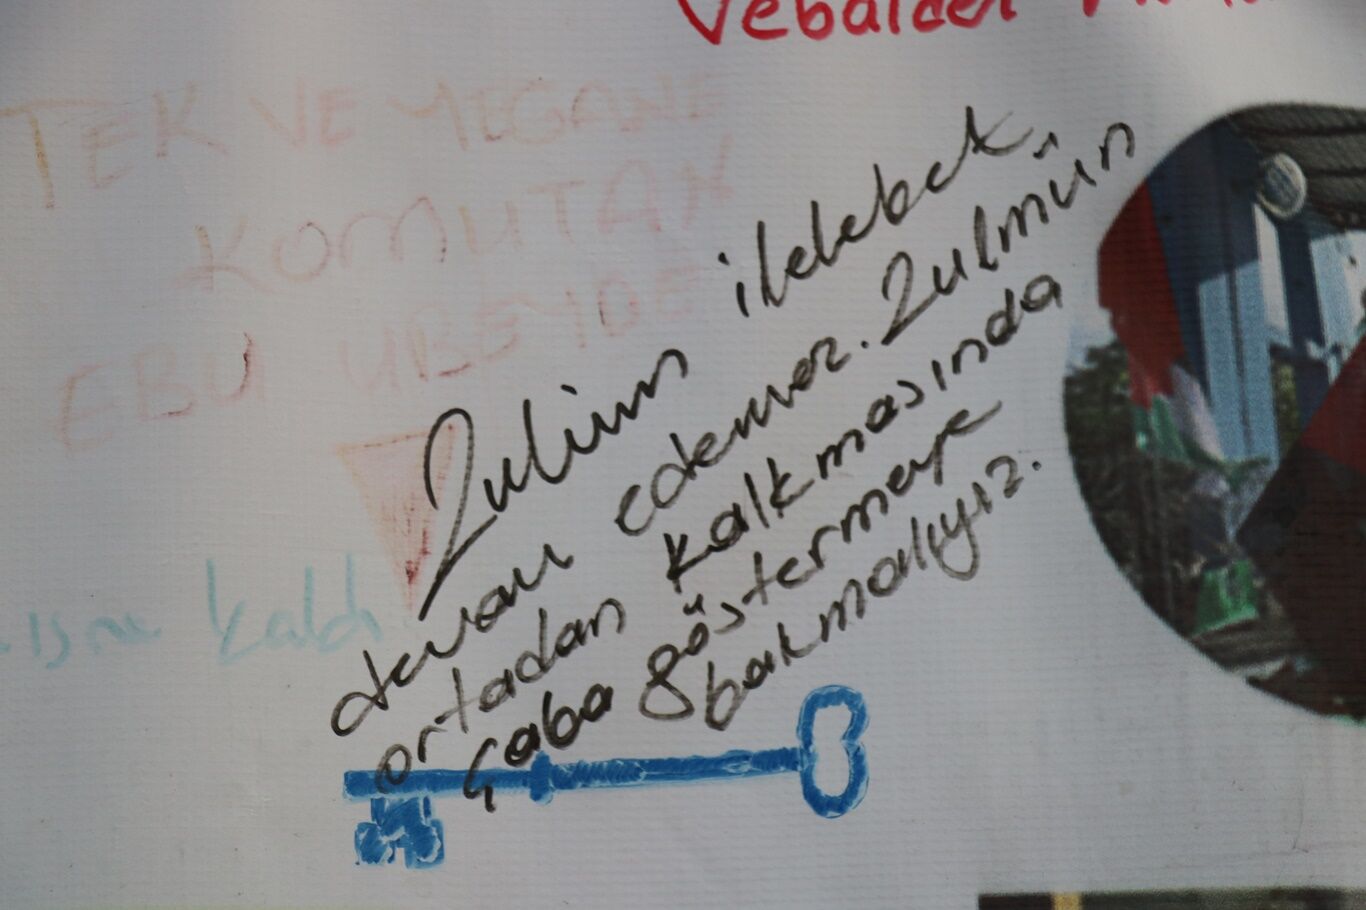 TEK VE YEGANE
KOMUTAN
EBU UBEYDE
Zulüm ilelebet
devam edemez. Zulmün
ortadan kalkmasında
çaba göstermeye
bakmalıyız.
kaldı